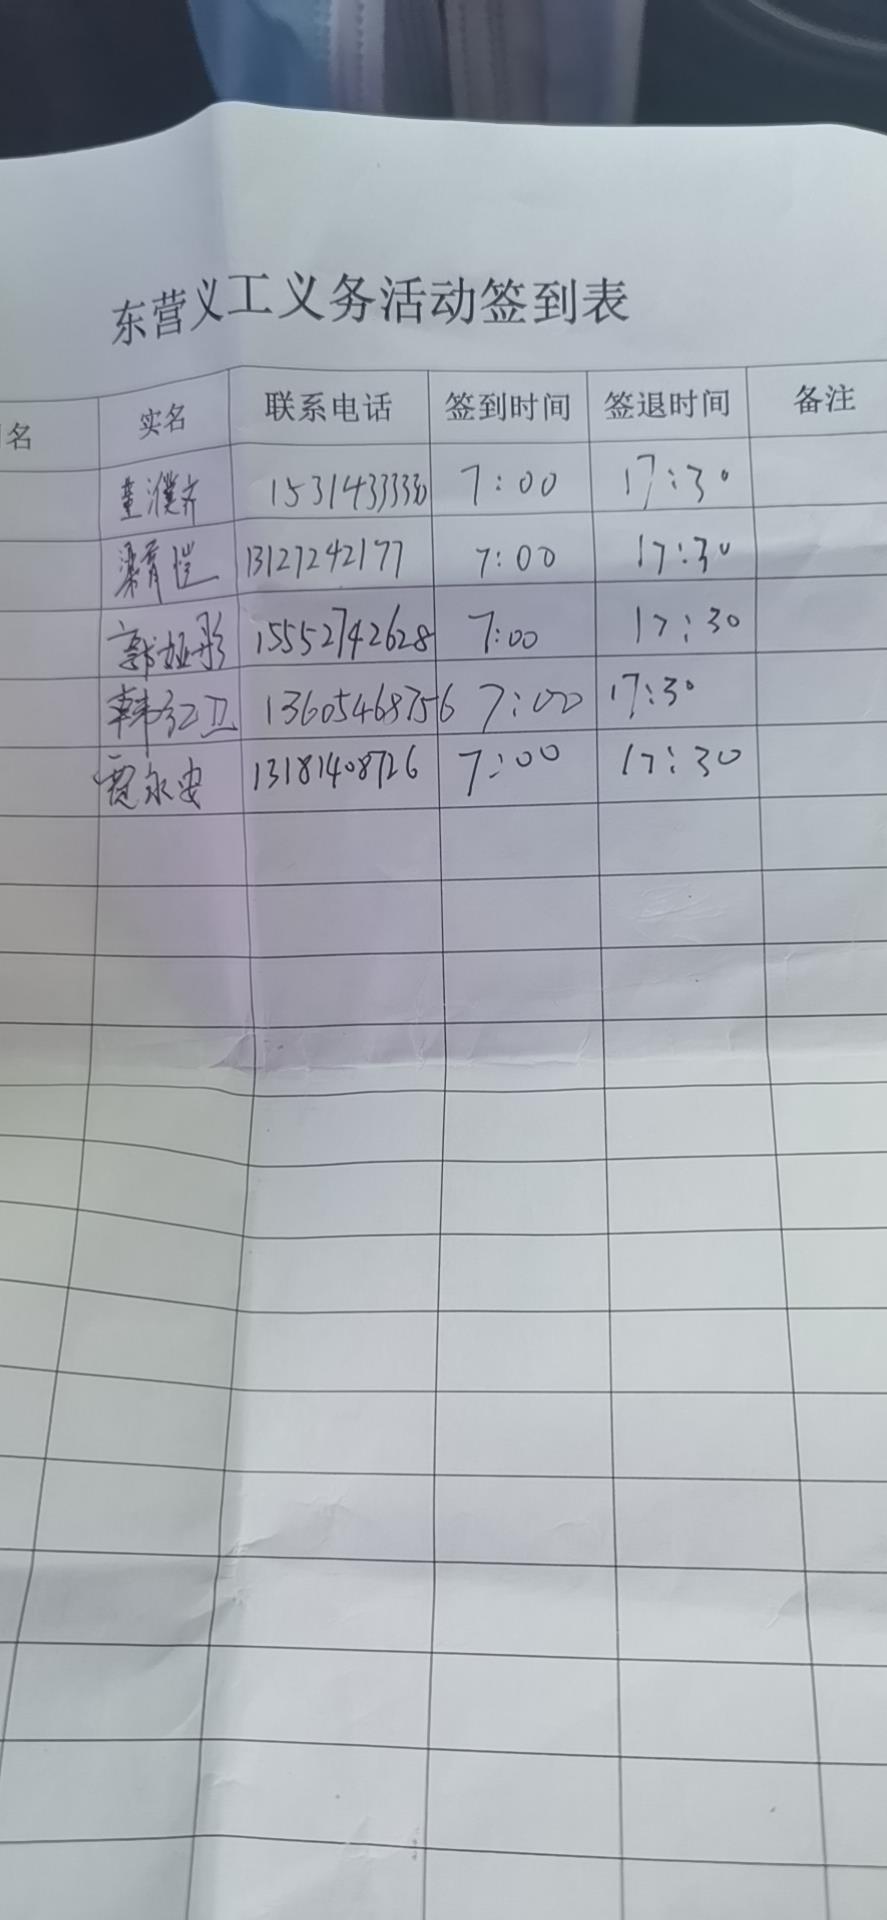 东营义工义务活动签到表
名 实名 联系电话 签到时间 签退时间 备注
董濮齐 15314333330 7:00 17:30
梁育恺 13127242177 7:00 17:30
郭娅彤 15552742628 7:00 17:30
韩红卫 13605468756 7:00 17:30
贾永安 13181408726 7:00 17:30